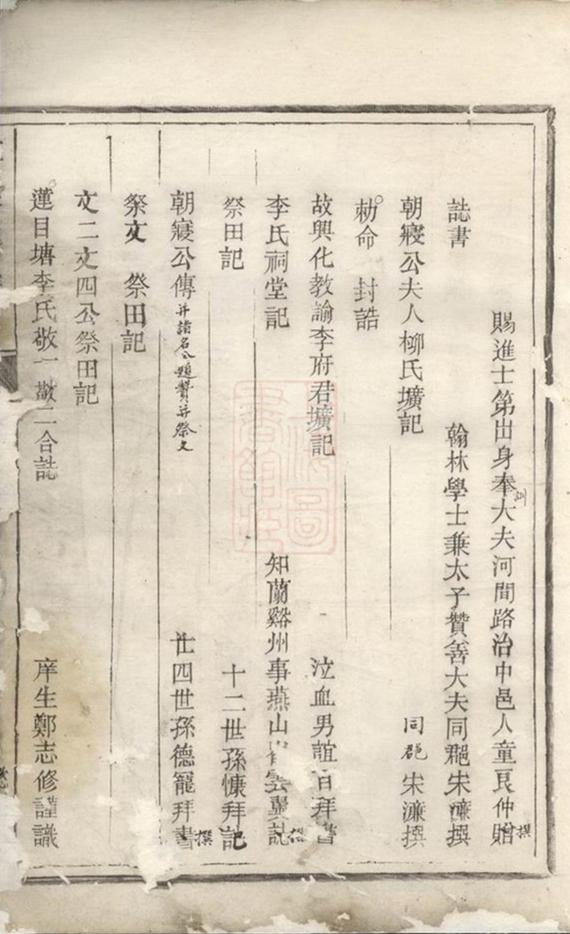 賜進士第出身奉大夫河間路治中邑人童良仲贈撰
誌書 翰林學士兼太子贊善大夫同郡宋濂撰
朝寢公夫人柳氏壙記 同郡宋濂撰
勅命 封誥
故興化教諭李府君壙記 泣血男誼百拜書
李氏祠堂記 知蘭谿州事燕山 雲翼記撰
祭田記 十二世孫慷拜記
朝寢公傳并諸名公題贊并祭文 廿四世孫德寵拜書撰
祭文 祭田記
文二文四公祭田記
蓮目塘李氏敬一敬二合誌 庠生鄭志修謹識